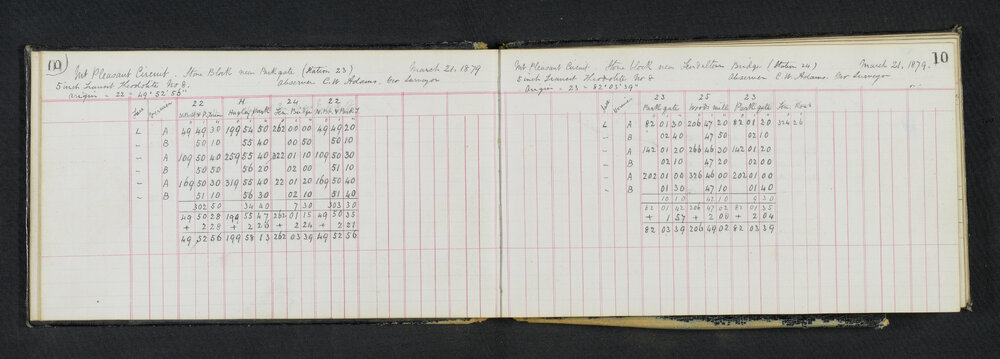 Mt Pleasant Circuit. Stone Block near Park gate (Station 23) March 21. 1879
5 inch Transit Theodolite No 8. Observer C.W. Adams. Geo Surveyor
Origin = 22 = 49° 52' 56"
22 H 24 22
Hagley Park Fen. Bridge
L A 49 49 30 199 54 50 262 00 00 49 49 20
– B 50 10 55 40 00 50 50 10
– A 109 50 40 259 55 40 322 01 10 109 50 30
– B 50 50 56 20 02 00 51 10
– A 169 50 30 319 55 40 22 01 20 169 50 40
– B 51 10 56 30 02 10 51 40
302 50 34 40 7 30 303 30
49 50 28 199 55 47 262 01 15 49 50 35
+ 2 28 + 2 26 + 2 24 + 2 21
49 52 56 199 58 13 262 03 39 49 52 56
10
Mt Pleasant Circuit. Stone block near Fendalton Bridge (Station 24) March 21. 1879.
5 inch Transit Theodolite No 8 Observer C.W. Adams. Geo Surveyor
Origin = 23 = 82° 03' 39"
23 25 23
Park gate Woods mill Park gate Fen. Road
L A 82 01 30 206 47 20 82 01 20 324 26
– B 02 40 47 50 02 10
– A 142 01 20 266 46 30 142 01 20
– B 02 10 47 20 02 00
– A 202 01 00 326 46 00 202 01 00
– B 01 30 47 10 01 40
10 10 42 10 9 30
82 01 42 206 47 02 82 01 35
+ 1 57 + 2 00 + 2 04
82 03 39 206 49 02 82 03 39